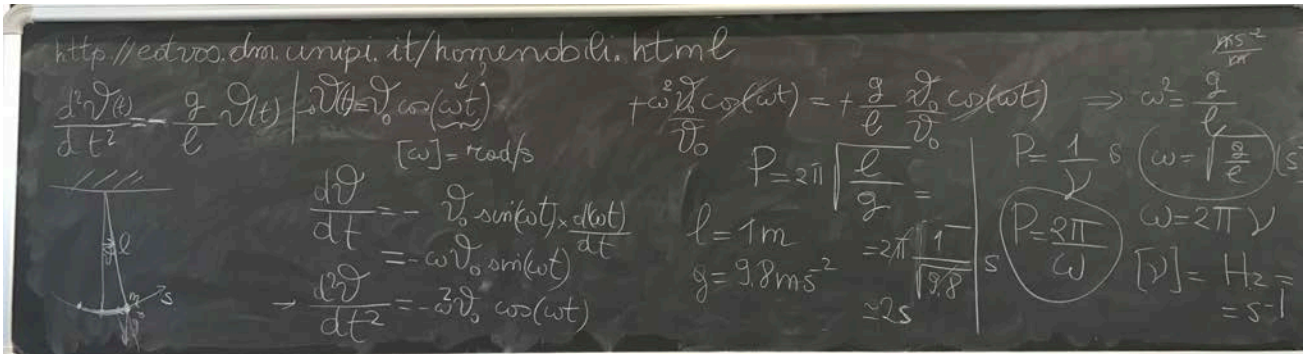 http://eotvos.dm.unipi.it/homenobili.html
ms⁻²/m
d²ϑ(t)/dt² = - g/l ϑ(t) | ϑ(t) = ϑ₀ cos(ωt)
+ω² ϑ₀/ϑ₀ cos(ωt) = + g/l ϑ₀/ϑ₀ cos(ωt) ⇒ ω² = g/l
[ω] = rad/s
dϑ/dt = - ϑ₀ sin(ωt) × d(ωt)/dt
= -ωϑ₀ sin(ωt)
→ d²ϑ/dt² = -ω²ϑ₀ cos(ωt)
l
s
P = 2π √(l/g) =
l = 1m
= 2π √(1/9.8) s
g = 9.8 ms⁻²
≃ 2s
P = 1/ν s
ω = √(g/l) (s
P = 2π/ω
ω = 2πν
[ν] = Hz =
= s⁻¹